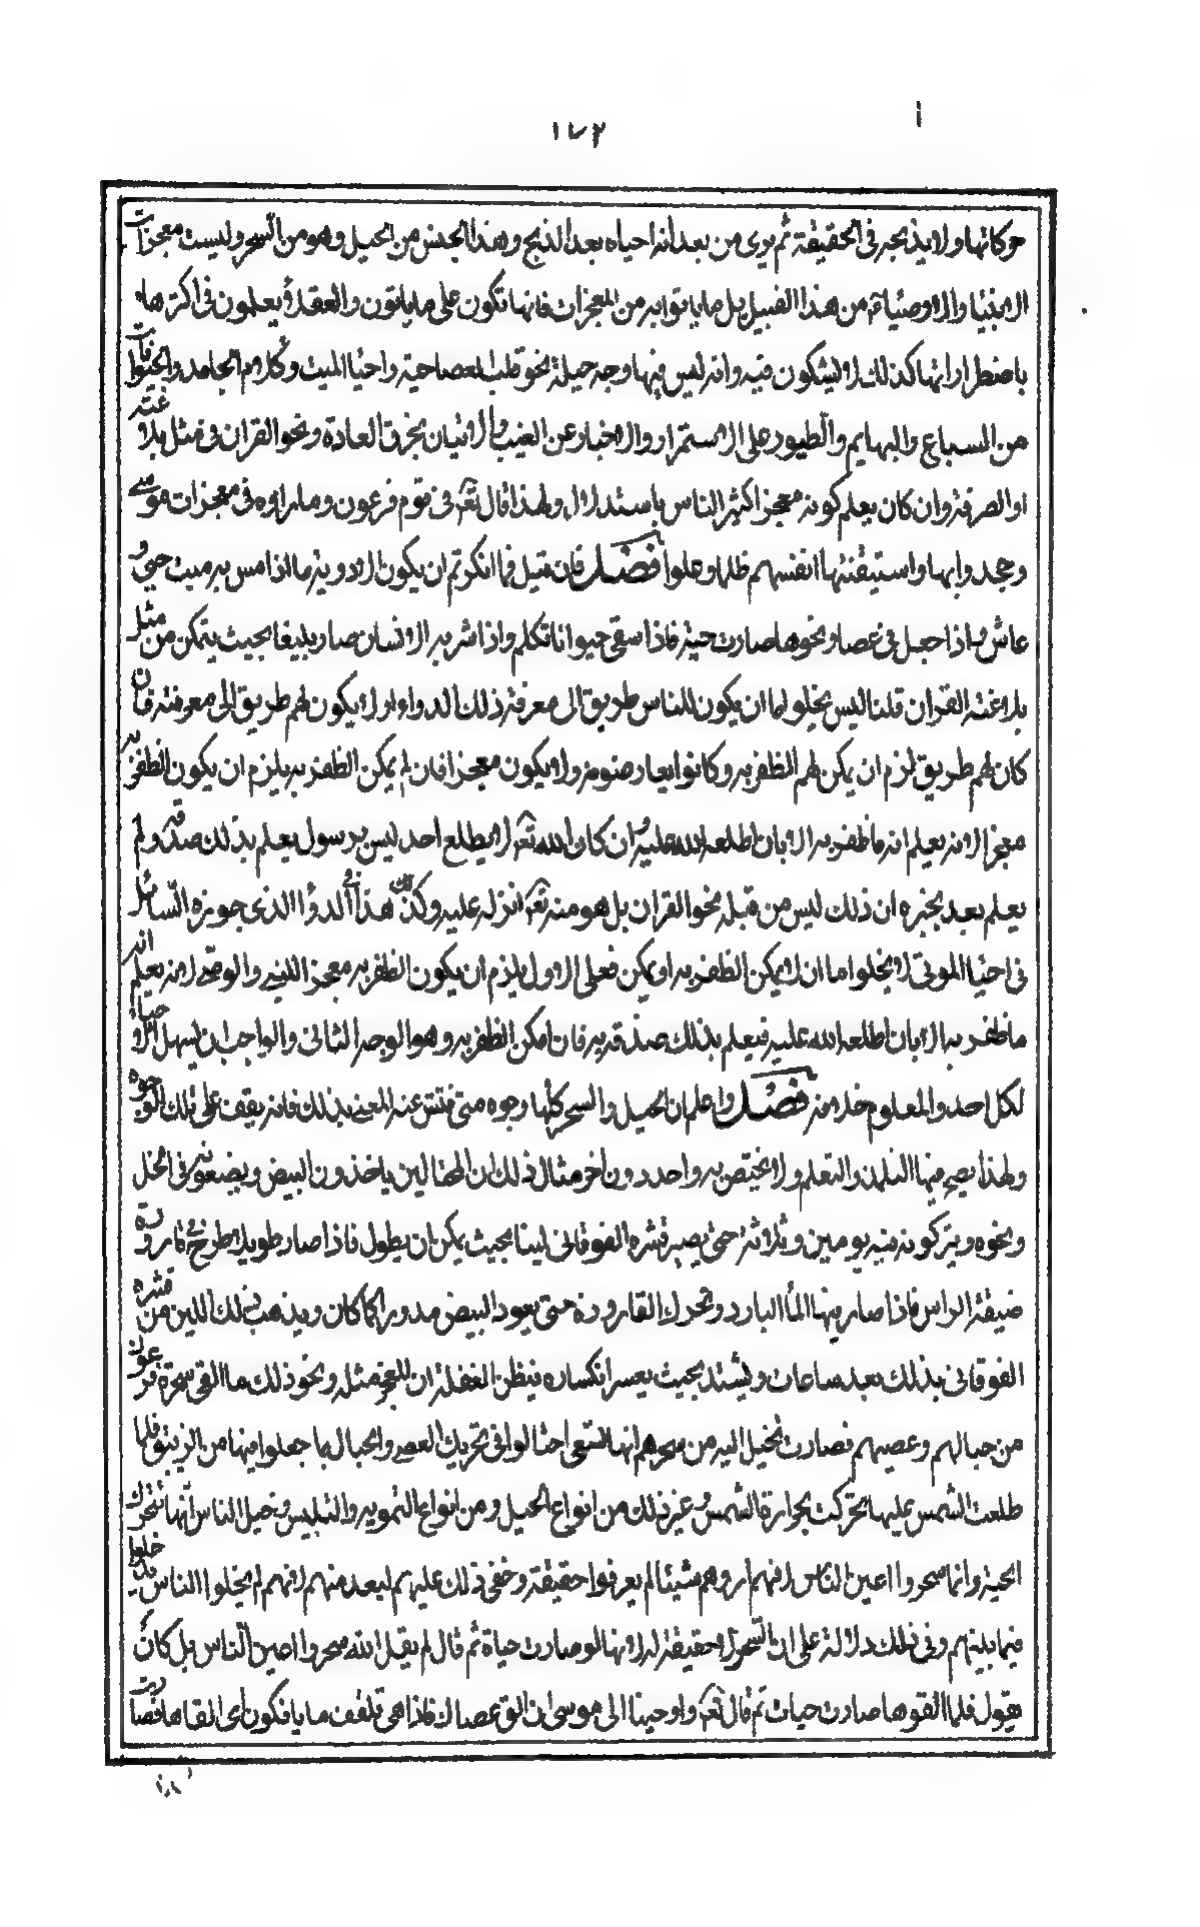 ١٧٢
حركاتها ولا يذبحه في الحقيقة ثم يرى من بعد انه احياه بعد الذبح وهذا الجنس من الحيل وهو من السحر وليست معجزات
الانبياء والاوصياء من هذا القبيل بل ما يأتوا به من المعجزات فانها تكون على ما يأتون والعقلاء يعلمون في اكثرها
باضطرار انها كذلك لا يشكون فيه وانه ليس فيها وجه حيلة نحو قلب العصا حية واحيا الميت وكلام الجامد والحيوانات
من السباع والبهايم والطيور على الاستمرار والاخبار عن الغيب والاتيان بخرق العادة ونحو القران في مثل بلاغته
او الصرفة وان كان يعلم كونه معجزا اكثر الناس باستدلال ولهذا قال تعه في قوم فرعون وما راوه في معجزات موسى
وجحدوا بها واستيقنتها انفسهم ظلما وعلوا فصل فان قيل فما انكرتم ان يكون الادوية ما اذا مس به ميت حيى و
عاش واذا جعل في عصا ونحوها صارت حية فاذا سقى حيوانا تكلم واذا شربه الانسان صار بليغا بحيث يتمكن من مثل
بلاغته القران قلنا ليس يخلوا اما ان يكون للناس طريق الى معرفة ذلك الدواء او لا يكون لهم طريق الى معرفته فان
كان لهم طريق لزم ان يمكن لهم الظفر به وكانوا يعارضونه ولا يكون معجزا فان لم يمكن الظفر به يلزم ان يكون الظفر به
معجزا لانه يعلم انه ما ظفر به الا بان اطلعه الله عليه وان كان الله تعه لا يطلع احد ليس برسول يعلم بذلك صدقه ولم
يعلم بعد بخبره ان ذلك ليس من قبله نحو القران بل هو منه تعه انزله عليه وكذلك هذا الدواء الذي جوزه السائل
في احيا الموتى لا يخلوا اما ان لا يمكن الظفر به او يمكن فعلى الاول يلزم ان يكون الظفر به معجز النبي والوصي لانه يعلم انه
ما ظفر به الا بان اطلعه الله عليه فيعلم بذلك صدقه به فان امكن الظفر به وهو الوجه الثاني والواجب ان يسهل الاحياء
لكل احد والمعلوم خلافه فصل واعلم ان الحيل والسحر كلها وجوه متى فتش عنه المعنى بذلك فانه يقف على تلك الوجوه
ولهذا يصح فيها التلمذ والتعلم ولا يختص به واحد دون اخر مثال ذلك ان المحتالين ياخذون البيض ويضعونه في الخل
ونحوه ويتركونه فيه يومين وثلاثة حتى يصير قشره الفوقاني لينا بحيث يمكن ان يطول فاذا صار طويلا طرح في قارورة
ضيقة الراس فاذا صار فيها الماء البارد وتحرك القارورة حتى يعود البيض مدورا كما كان ويذهب ذلك اللين من قشره
الفوقاني بذلك بعد ساعات ويشتد بحيث يعسر انكساره فيظن الغفلة ان المعجز مثله ونحو ذلك ما القى سحرة فرعون
من حبالهم وعصيهم فصارت تخيل اليه من سحرهم انها تسعى احتالوا في تحريك العصى والحبال بما جعلوا فيها من الزيبق فلما
طلعت الشمس عليها تحركت بحرارة الشمس وغير ذلك من انواع الحيل ومن انواع التمويه والتلبيس وخيل الناس انها تتحرك
الحية وانما سحروا اعين الناس لانهم اروهم شيئا لم يعرفوا حقيقته وخفى ذلك عليهم لبعده منهم لانهم لم يخلوا الناس يدخلوا
فيما بينهم وفي ذلك دلالة على ان السحر لا حقيقة له لانها لو صارت حياة ثم قال لم يقل الله سحروا اعين الناس بل كان
يقول فلما القوها صارت حيات ثم قال تعه واوحينا الى موسى ان الق عصاك فاذا هي تلقف ما يافكون اى القاها فصارت